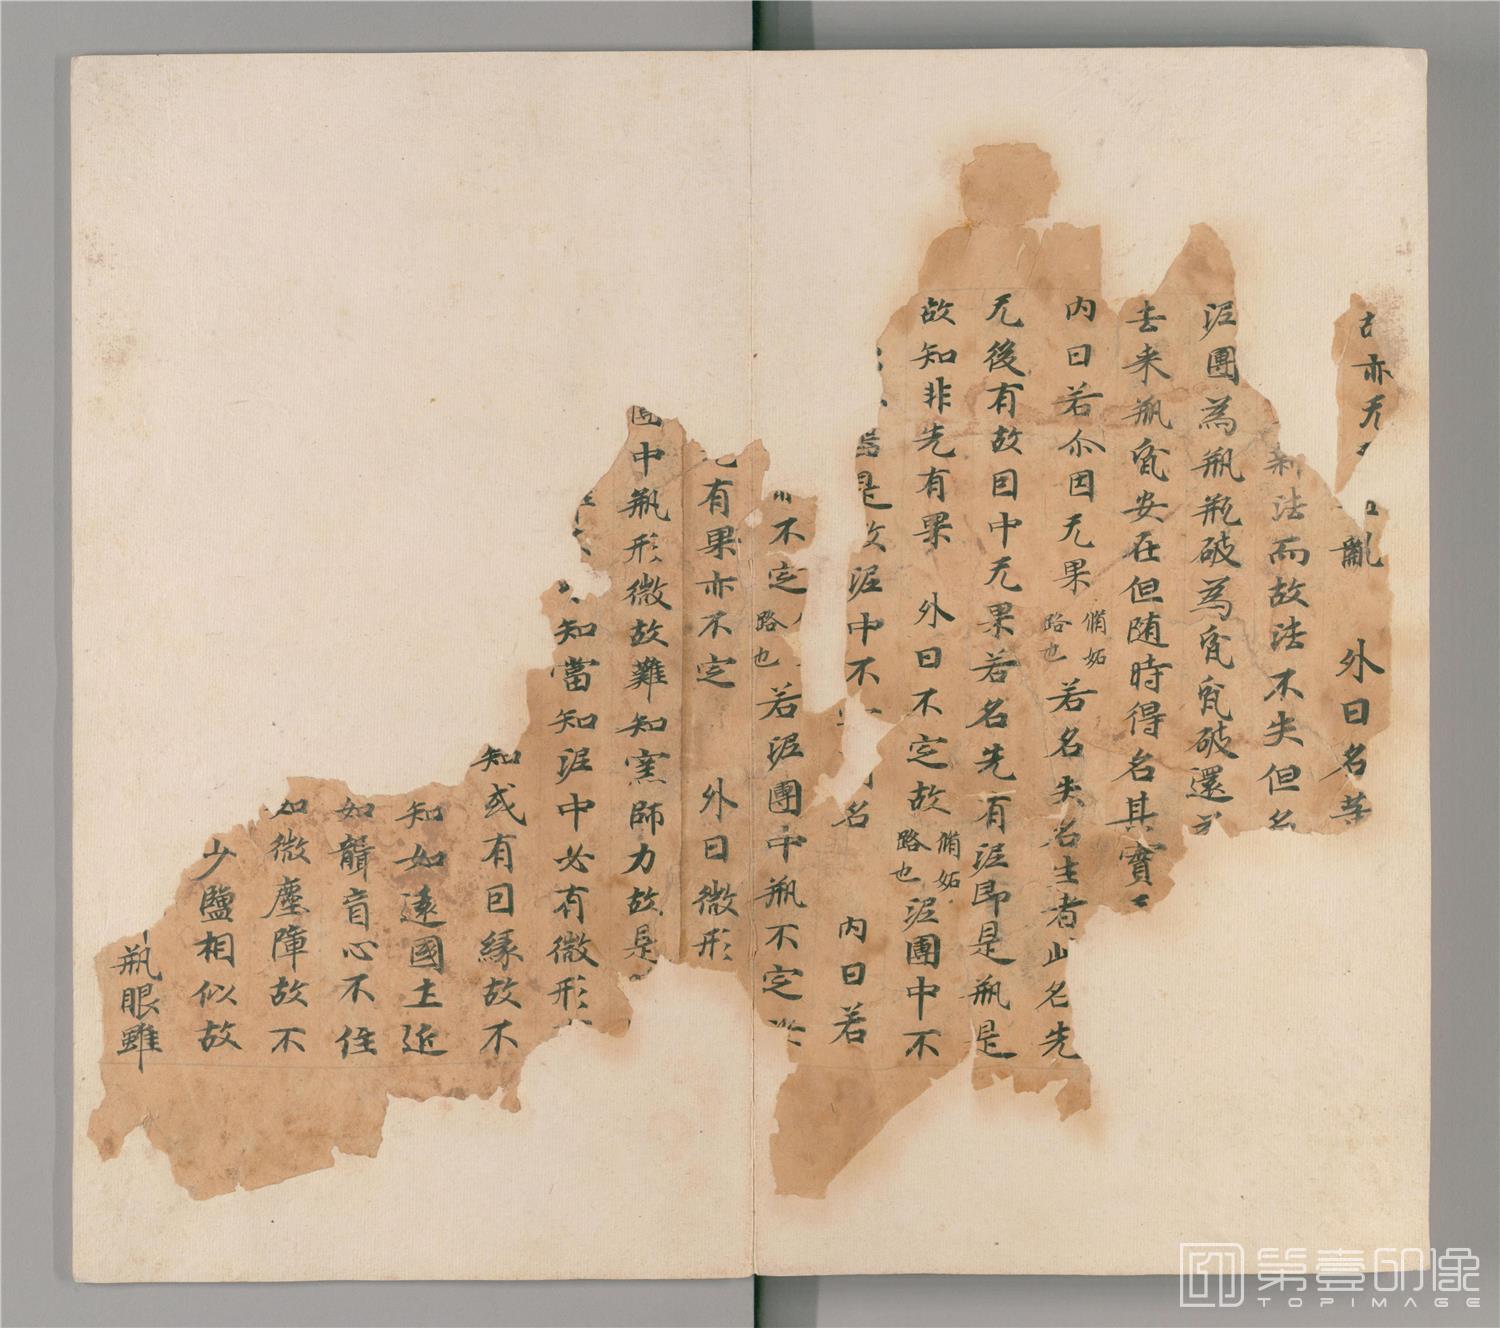 亦无
亂 外曰名等
法而故法不失但名
泥團為瓶瓶破為瓫瓫破還
去来瓶瓫安在但随時得名其實
内曰若尒因无果 脩妬路也 若名失名生者此名先
无後有故因中无果若名先有泥即是瓶是
故知非先有果 外曰不定故 脩妬路也 泥團中不
為是故泥中不 名 内曰若
不定 路也 若泥團中瓶不定
有果亦不定 外曰微形
團中瓶形微故難知窯師力故是
知當知泥中必有微形
知或有因緣故不
知如遠國土近
如聾盲心不住
如微塵障故不
少鹽相似故
瓶眼雖
第壹印像
TOPIMAGE